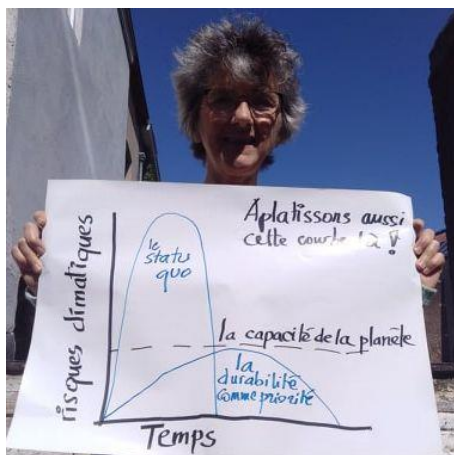 Aplatissons aussi
cette courbe là !
risques climatiques
le
statu
quo
la capacité de la planète
la
durabilité
comme priorité
Temps